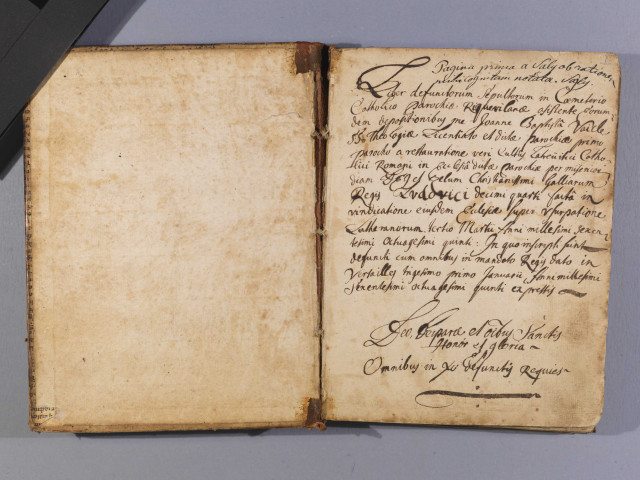 Pagina prima a
notata
Liber defunctorum Sepultorum in Cœmeterio
Catholico Parochiæ existente eorum
dem depositionibus me Joanne Baptista
SS. Theologiæ Licentiato et dictæ Parochiæ primo
parocho a restauratione veri Cultus Catho
lici Romani in Ecclesia dictæ Parochiæ per
zelum Christianissimi Galliarum
Regis Ludovici decimi quarti facta in
vindicatione eiusdem Ecclesiæ super Usurpatione
Lutheranorum tertio Martii Anni millesimi sexcen
tesimi octuagesimi quinti: In quo inscripti sunt
defuncti cum omnibus in mandato Regis dato in
Versailles Vigesimo primo Januarii Anni millesimi
sexcentesimi octuagesimi quinti expressis
Deo, Deiparæ et oibus Sanctis
Honor et gloria
Omnibus in Xo defunctis Requies